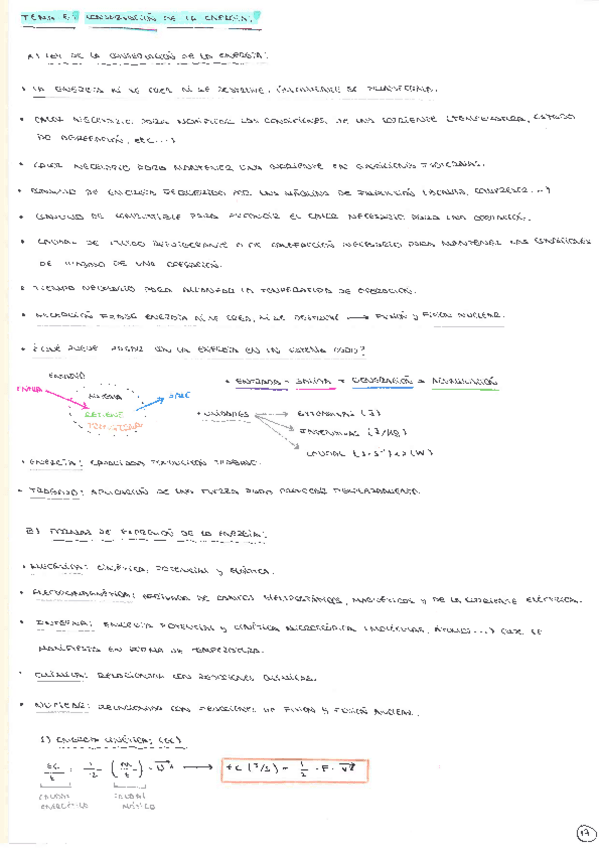 TEMA 5: CONSERVACIÓN DE LA ENERGÍA.
A) LEY DE LA CONSERVACIÓN DE LA ENERGÍA:
• LA ENERGÍA NI SE CREA NI SE DESTRUYE, ÚNICAMENTE SE TRANSFORMA.
• CALOR NECESARIO PARA MODIFICAR LAS CONDICIONES DE UNA CORRIENTE (TEMPERATURA, ESTADO
DE AGREGACIÓN, etc...)
• CALOR NECESARIO PARA MANTENER UNA CORRIENTE EN CONDICIONES
• CONSUMO DE ENERGÍA REQUERIDO POR UNA MÁQUINA DE IMPULSIÓN (BOMBA, COMPRESOR...)
• CONSUMO DE COMBUSTIBLE PARA PRODUCIR EL CALOR NECESARIO PARA UNA OPERACIÓN.
• CAUDAL DE FLUIDO REFRIGERANTE O DE CALEFACCIÓN NECESARIO PARA MANTENER LAS CONDICIONES
DE TRABAJO DE UNA OPERACIÓN.
• TIEMPO NECESARIO PARA ALCANZAR LA TEMPERATURA DE OPERACIÓN.
• ENERGÍA NI SE CREA, NI SE DESTRUYE → FUSIÓN y FISIÓN NUCLEAR.
• ¿QUÉ PUEDE PASAR CON LA ENERGÍA EN UN SISTEMA DADO?
ENTRA
GENERA
RETIENE
TRANSFIERE
SALE
• ENTRADA - SALIDA + GENERACIÓN = ACUMULACIÓN
• UNIDADES
EXTENSIVAS (J)
INTENSIVAS (J/kg)
CAUDAL (J·s⁻¹) (W)
• ENERGÍA: CAPACIDAD TRABAJO.
• TRABAJO: APLICACIÓN DE UNA FUERZA PARA PROVOCAR DESPLAZAMIENTO.
B) FORMAS DE EXPRESIÓN DE LA ENERGÍA:
• MECÁNICA: CINÉTICA, POTENCIAL y ELÁSTICA.
• ELECTROMAGNÉTICA: DERIVADA DE CAMPOS ELECTROSTÁTICOS, MAGNÉTICOS y DE LA CORRIENTE ELÉCTRICA.
• INTERNA: ENERGÍA POTENCIAL y CINÉTICA MICROSCÓPICA (MOLÉCULAS, ÁTOMOS...) QUE SE
MANIFIESTA EN FORMA DE TEMPERATURA.
• QUÍMICA: RELACIONADA CON REACCIONES QUÍMICAS.
• NUCLEAR: RELACIONADA CON REACCIONES DE FISIÓN y FUSIÓN NUCLEAR.
1) ENERGÍA CINÉTICA: (EC)
EC/t = 1/2 · (m/t) · v² → EC (J/s) = 1/2 · F · v²
CAUDAL CAUDAL
ENERGÉTICO MÁSICO
17